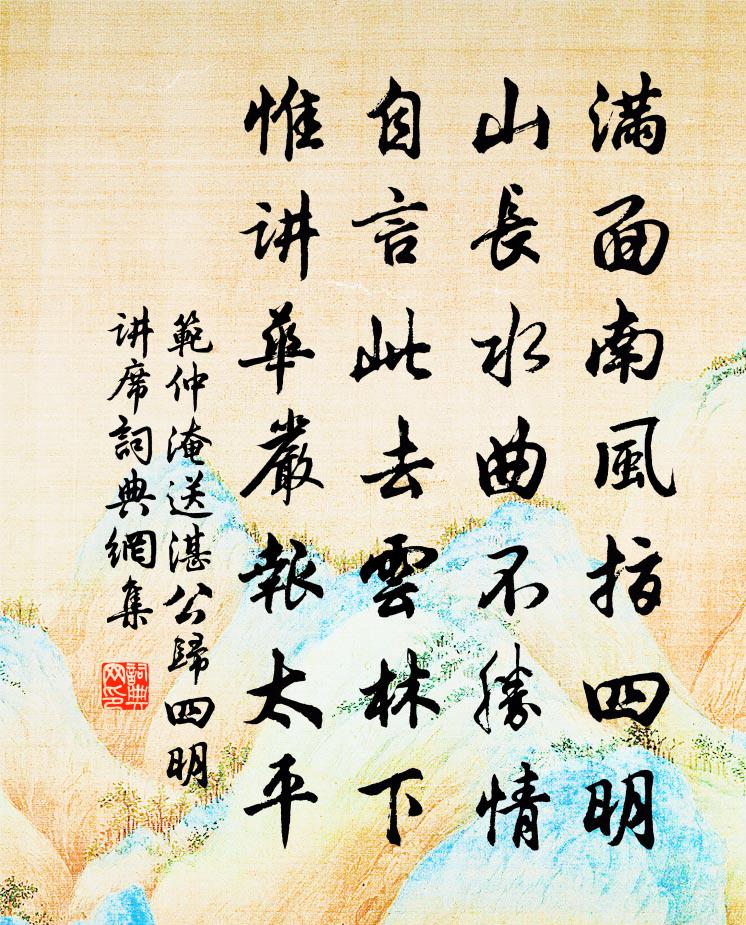 滿面南風指四明
山長水曲不勝情
自言此去雲林下
惟讲華嚴報太平
範仲淹送湛公歸四明
讲席詞典網集
詞典
网印